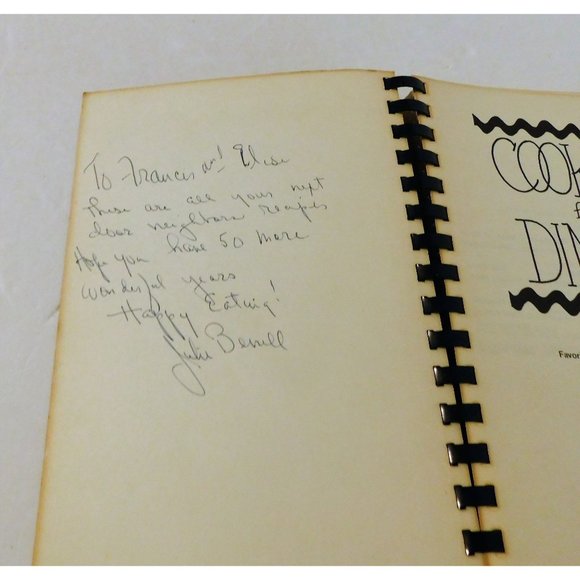 To Francis & Elise
these are all your next
door neighbors recipes
Hope you have 50 more
wonderful years
Happy Eating!
Julie
COOK
DIN
Favor